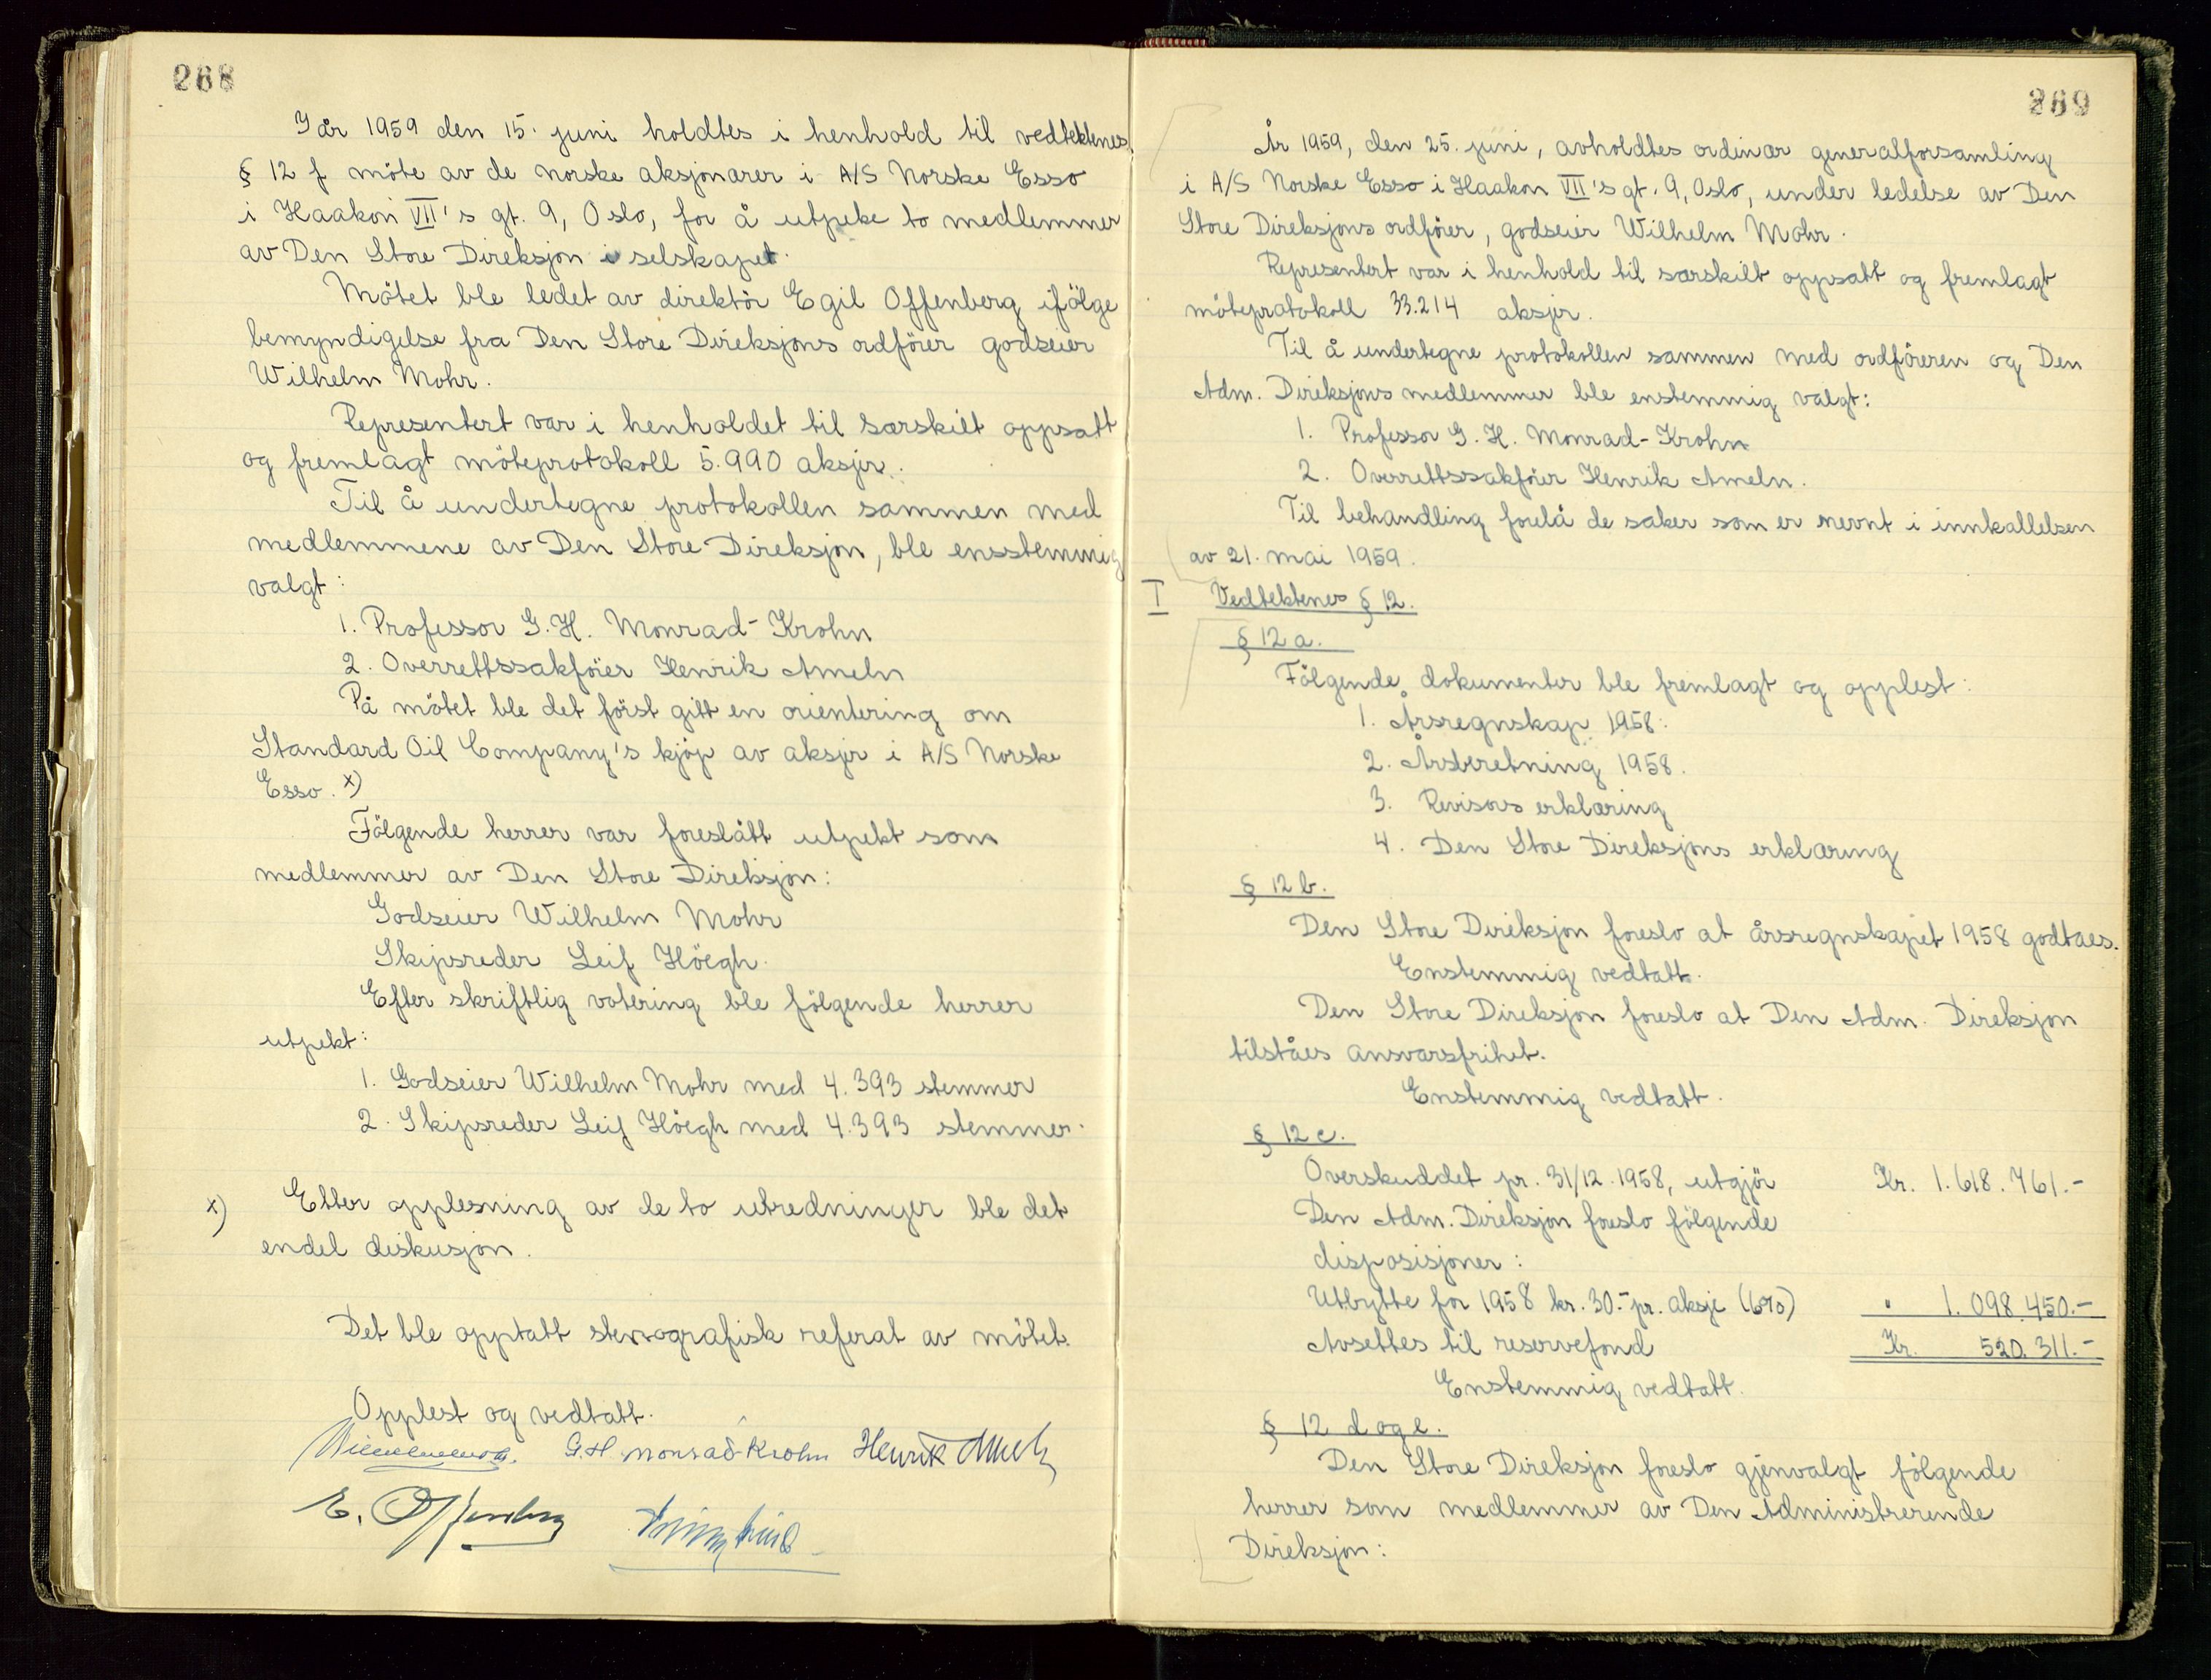 268
I år 1959 den 15. juni holdtes i henhold til vedtektenes
§ 12 f möte av de norske aksjonærer i A/S Norske Esso
i Haakon VII's gt. 9, Oslo, for å utpeke to medlemmer
av Den Store Direksjon i selskapet.
Mötet ble ledet av direktör Egil Offenberg ifölge
bemyndigelse fra Den Store Direksjons ordförer godseier
Wilhelm Mohr.
Representert var i henholdet til særskilt oppsatt
og fremlagt möteprotokoll 5.990 aksjer.
Til å undertegne protokollen sammen med
medlemmene av Den Store Direksjon, ble ensstemmig
valgt:
1. Professor G.H. Monrad-Krohn
2. Overrettssakförer Henrik Ameln
På mötet ble det först gitt en orientering om
Standard Oil Company's kjöp av aksjer i A/S Norske
Esso. x)
Fölgende herrer var foreslått utpekt som
medlemmer av Den Store Direksjon:
Godseier Wilhelm Mohr
Skipsreder Leif Höegh.
Efter skriftlig votering ble fölgende herrer
utpekt:
1. Godseier Wilhelm Mohr med 4.393 stemmer
2. Skipsreder Leif Höegh med 4.393 stemmer.
x) Etter opplesning av de to utredninger ble det
endel diskusjon.
Det ble opptatt stenografisk referat av mötet.
Opplest og vedtatt.
G.H. Monrad-Krohn Henrik Ameln
E. Offenberg
269
År 1959, den 25. juni, avholdtes ordinær generalforsamling
i A/S Norske Esso i Haakon VII's gt. 9, Oslo, under ledelse av Den
Store Direksjons ordförer, godseier Wilhelm Mohr.
Representert var i henhold til særskilt oppsatt og fremlagt
möteprotokoll 33.214 aksjer.
Til å undertegne protokollen sammen med ordföreren og Den
Adm. Direksjons medlemmer ble enstemmig valgt:
1. Professor G.H. Monrad-Krohn
2. Overrettssakförer Henrik Ameln.
Til behandling forelå de saker som er nevnt i innkallelsen
av 21. mai 1959.
I Vedtektenes § 12.
§ 12 a.
Fölgende dokumenter ble fremlagt og opplest:
1. Årsregnskap 1958.
2. Årsberetning 1958.
3. Revisors erklæring
4. Den Store Direksjons erklæring
§ 12 b.
Den Store Direksjon foreslo at årsregnskapet 1958 godtaes.
Enstemmig vedtatt.
Den Store Direksjon foreslo at Den Adm. Direksjon
tilståes ansvarsfrihet.
Enstemmig vedtatt.
§ 12 c.
Overskuddet pr. 31/12.1958, utgjör Kr. 1.618.761.-
Den Adm. Direksjon foreslo fölgende
disposisjoner:
Utbytte for 1958 kr. 30.- pr. aksje (6%) " 1.098.450.-
Avsettes til reservefond Kr. 520.311.-
Enstemmig vedtatt.
§ 12 d og e.
Den Store Direksjon foreslo gjenvalgt fölgende
herrer som medlemmer av Den Administrerende
Direksjon: